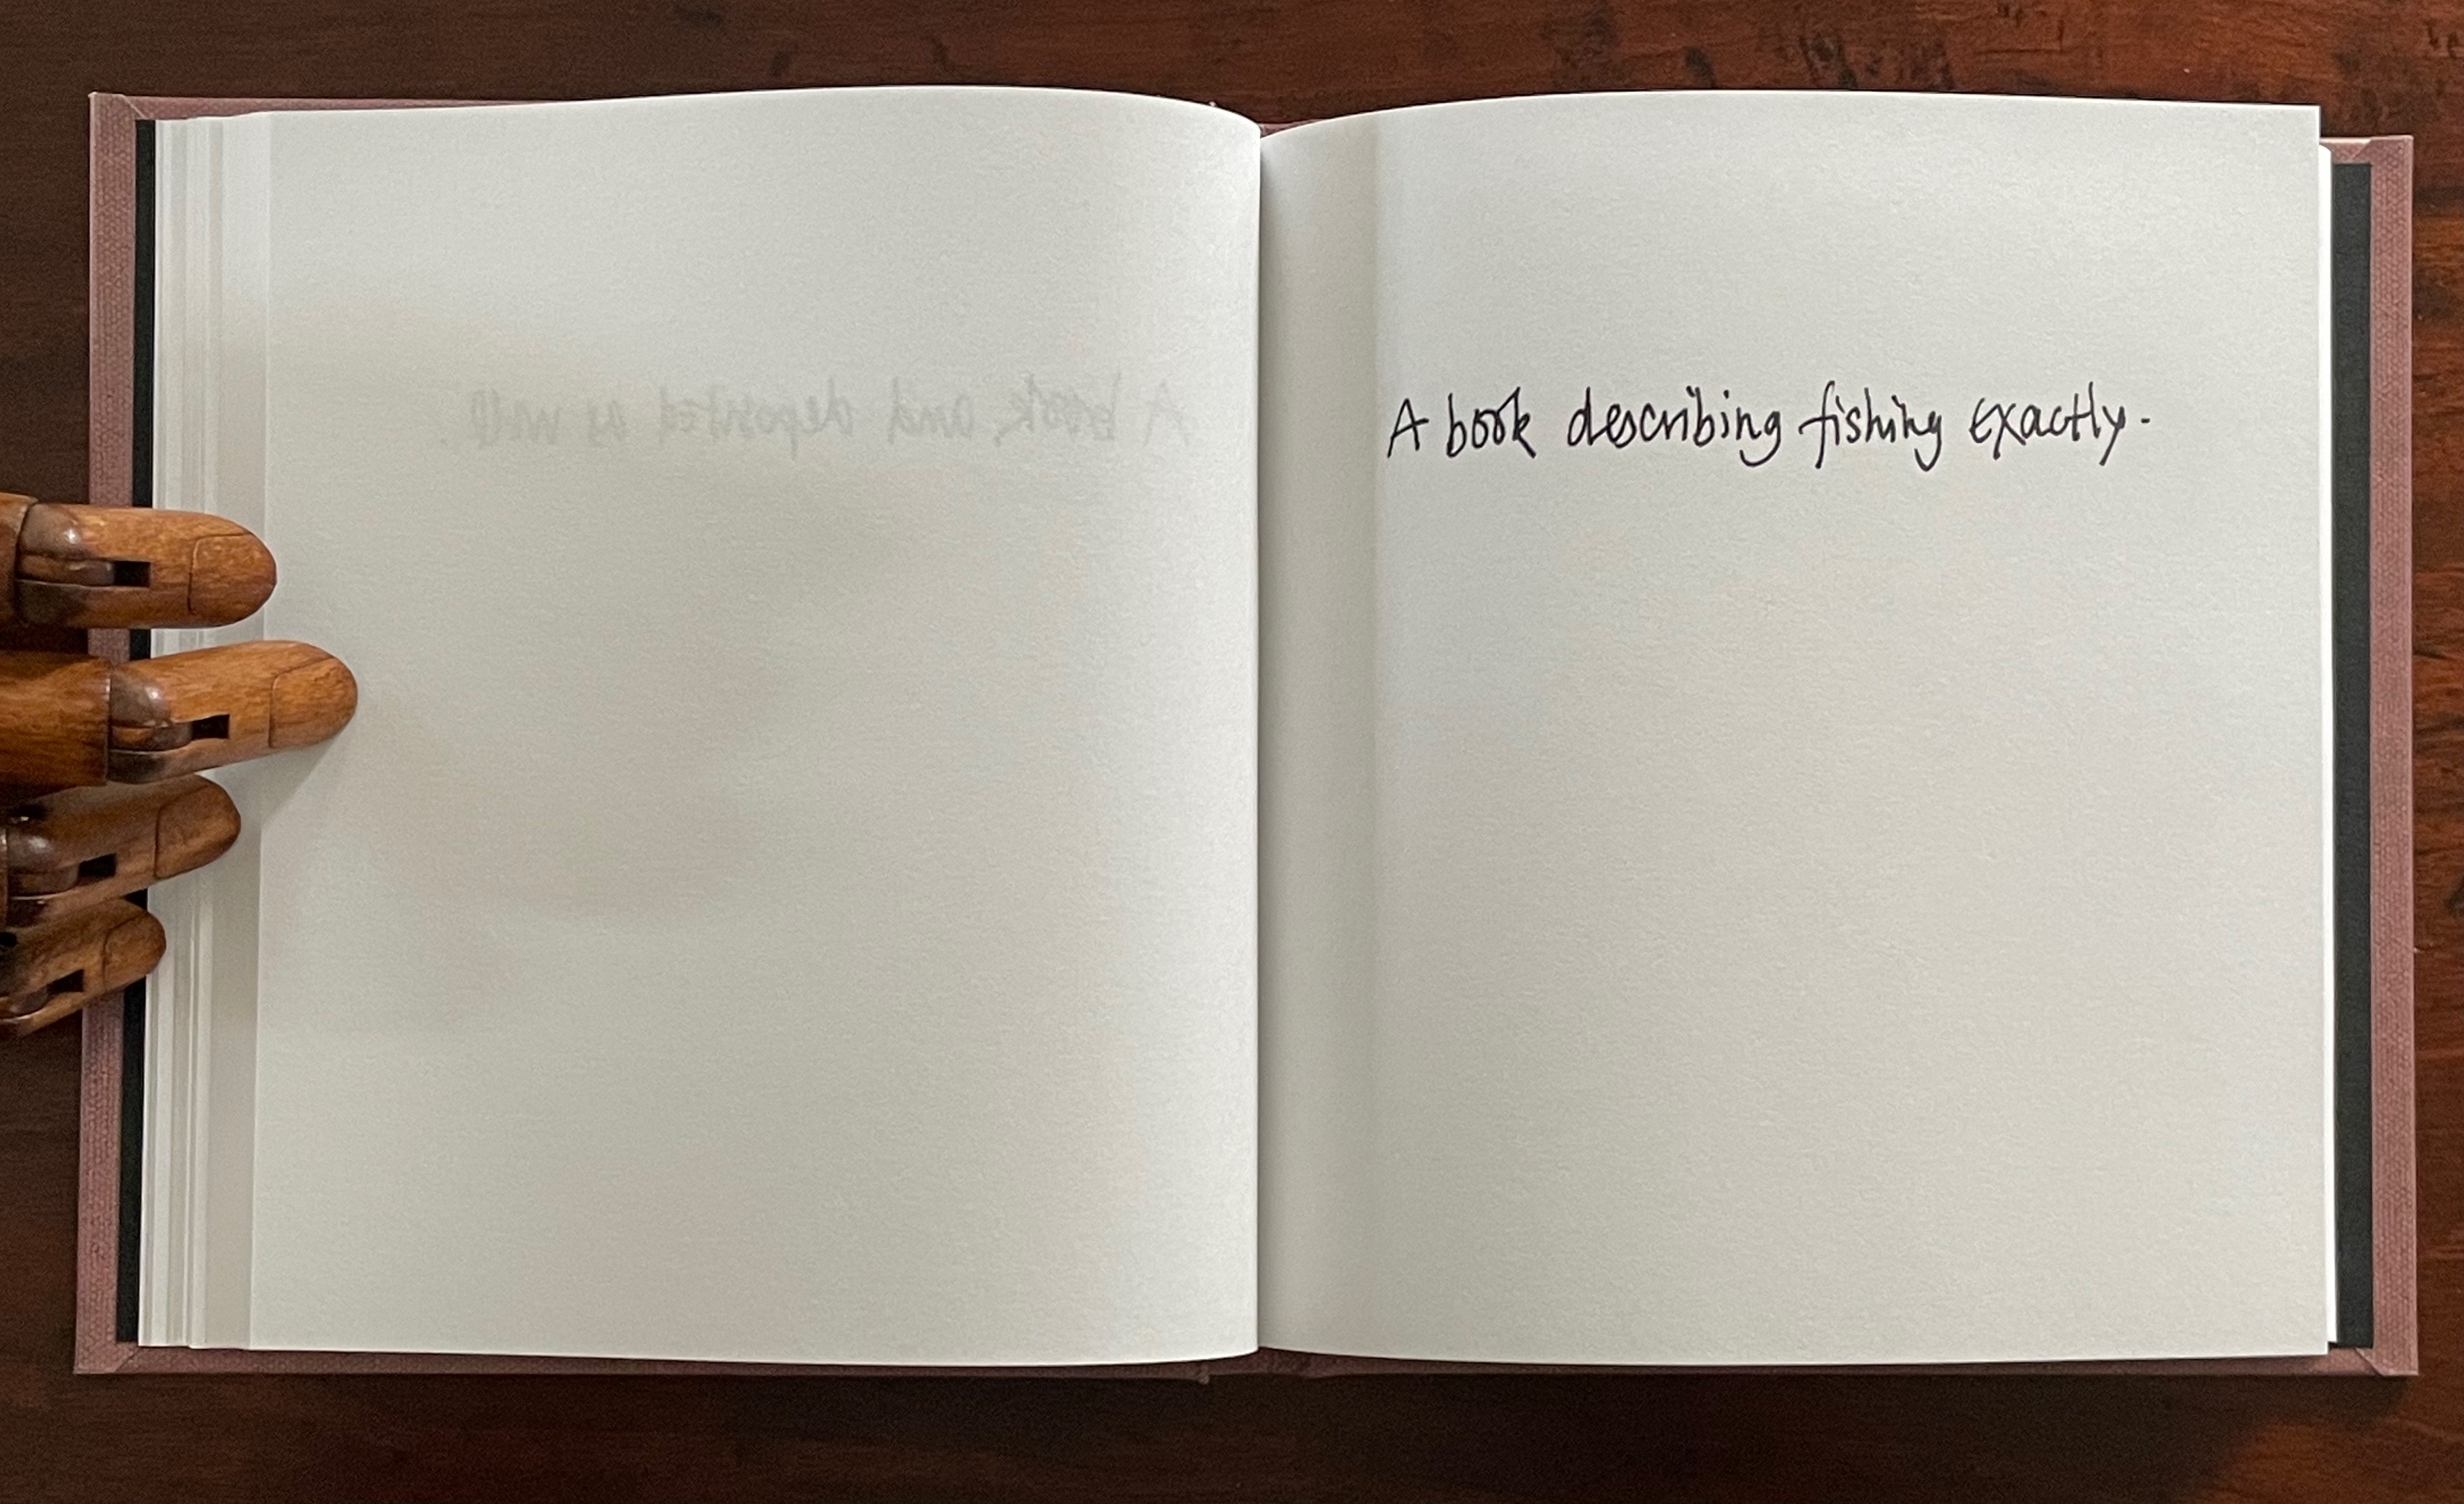 A book and deposited as well.
A book describing fishing exactly.